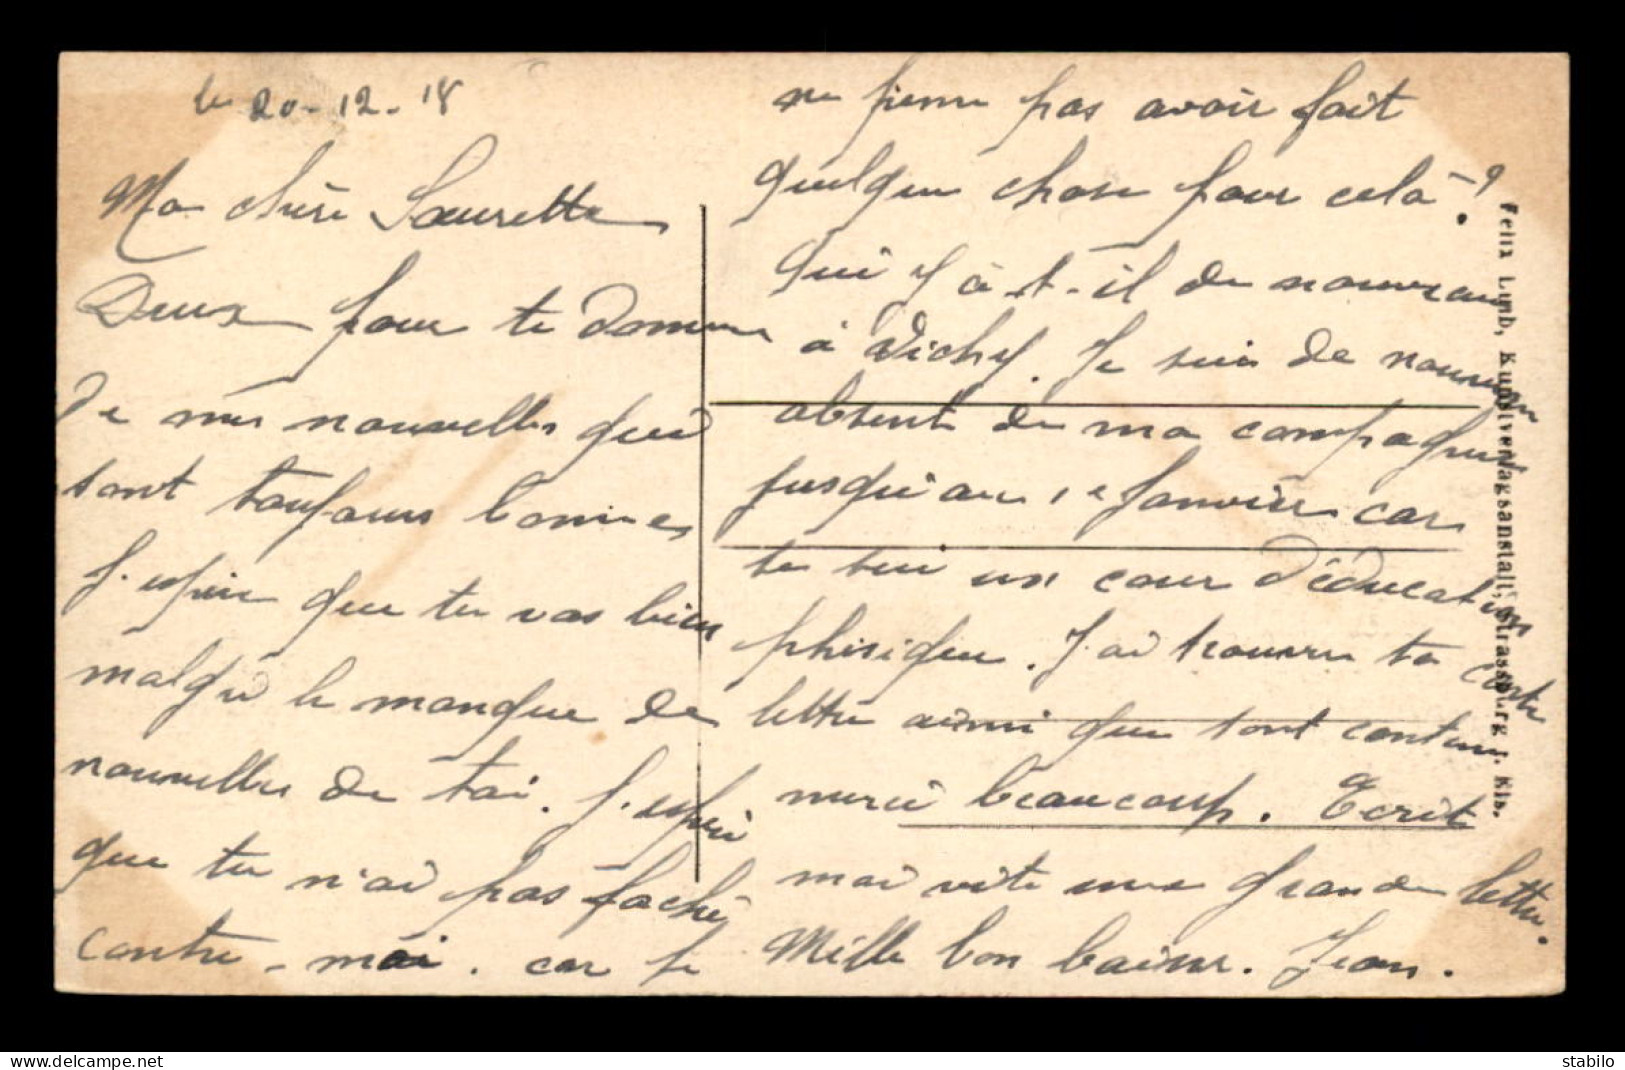 le 20-12-18
Ma chère Sœurette
Deux pour te donner
de mes nouvelles quid
sont toujours bonnes
J'espère que tu vas bien
malgré le manque de
nouvelles de toi. J'espère
que tu n'ai pas faché
contre-moi. car je
ne pense pas avoir fait
quelque chose pour celà?
Qui y à-t-il de nouveau
à Vichy. Je suis de nouveau
absent de ma compagnie
jusqu'au 1er Janvier car
je sui un cour d'éducation
phisique. J'ai trouver ta carte
lettre ainsi que sont contenu
merci beaucoup. Ecrit
moi vite une grande lettre.
Mille bon baiser. Jean.
Felix Luib, Kunstverlagsanstalt, Strassburg i. Els.
stabilo